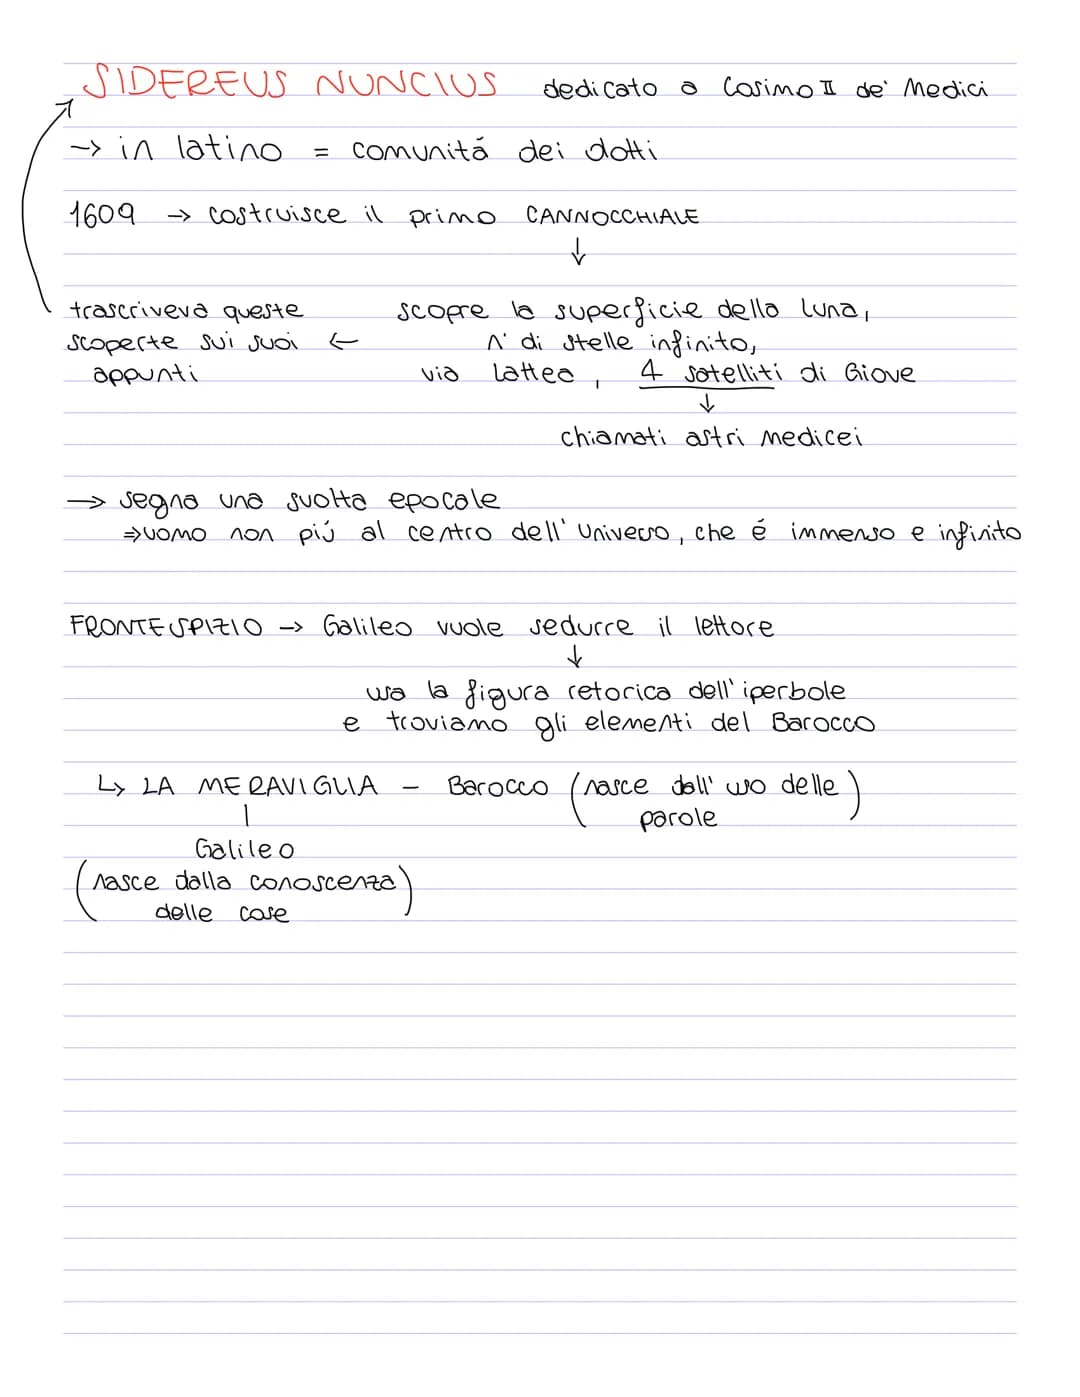 SIDEREUS NUNCIUS dedicato a Cosimo II de' Medici
-> in latino = comunitá dei dotti
1609 -> costruisce il primo CANNOCCHIALE
↓
trascriveva queste scopre la superficie della luna,
scoperte sui suoi ← n° di stelle infinito,
appunti via lattea, 4 satelliti di Giove
↓
chiamati astri medicei
-> segna una svolta epocale
⇒ uomo non piú al centro dell'Universo, che é immenso e infinito
FRONTESPIZIO -> Galileo vuole sedurre il lettore
↓
usa la figura retorica dell'iperbole
e troviamo gli elementi del Barocco
↳ LA MERAVIGLIA - Barocco (nasce dall'uso delle
| parole)
Galileo
(nasce dalla conoscenza
delle cose)